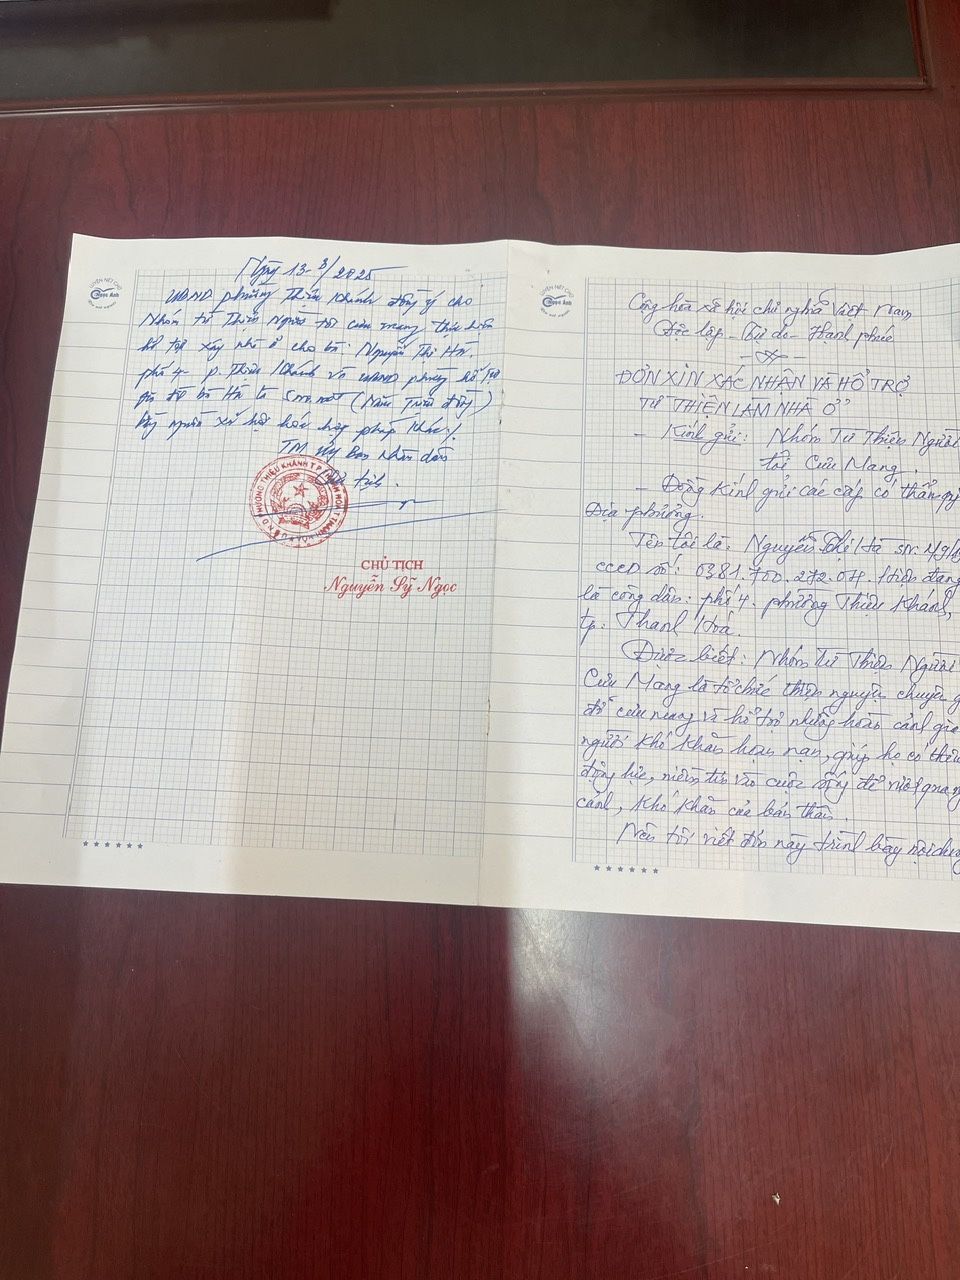 Ngày 13-3/2025
UBND phường Thiệu Khánh đồng ý cho
Nhóm từ Thiện Người tôi cưu mang thực hiện
hỗ trợ xây nhà ở cho bà: Nguyễn Thị Hà.
phố 4- p. Thiệu Khánh và UBND phường hỗ trợ
gia đình bà Hà là 5.000.000đ (Năm Triệu đồng)
bằng nguồn xã hội hóa hợp pháp khác/.
TM Ủy Ban Nhân dân
Chủ tịch.
CHỦ TỊCH
Nguyễn Sỹ Ngọc
LUYỆN NÉT CHỮ
Ngọc Ánh
Cộng hòa xã hội chủ nghĩa Việt Nam
Độc lập - Tự do - Hạnh phúc
ĐƠN XIN XÁC NHẬN VÀ HỖ TRỢ
TỪ THIỆN LÀM NHÀ Ở
- Kính gửi: Nhóm Từ Thiện Người
tôi Cưu Mang.
- Đồng Kính gửi các cấp có thẩm
Địa phương.
Tên tôi là: Nguyễn Thị Hà SN:
CCCD số: 0381.700.272.04. Hiện đang
là công dân: phố 4. phường Thiệu Khánh,
tp: Thanh Hoá.
Được biết: Nhóm Từ Thiện Người
Cưu Mang là tổ chức thiện nguyện chuyên
để cưu mang và hỗ trợ những hoàn cảnh
người khó khăn hoạn nạn, giúp họ có thêm
động lực, niềm tin vào cuộc sống để vượt qua
cảnh, khó khăn của bản thân.
Nên tôi viết đơn này trình bày nội dung